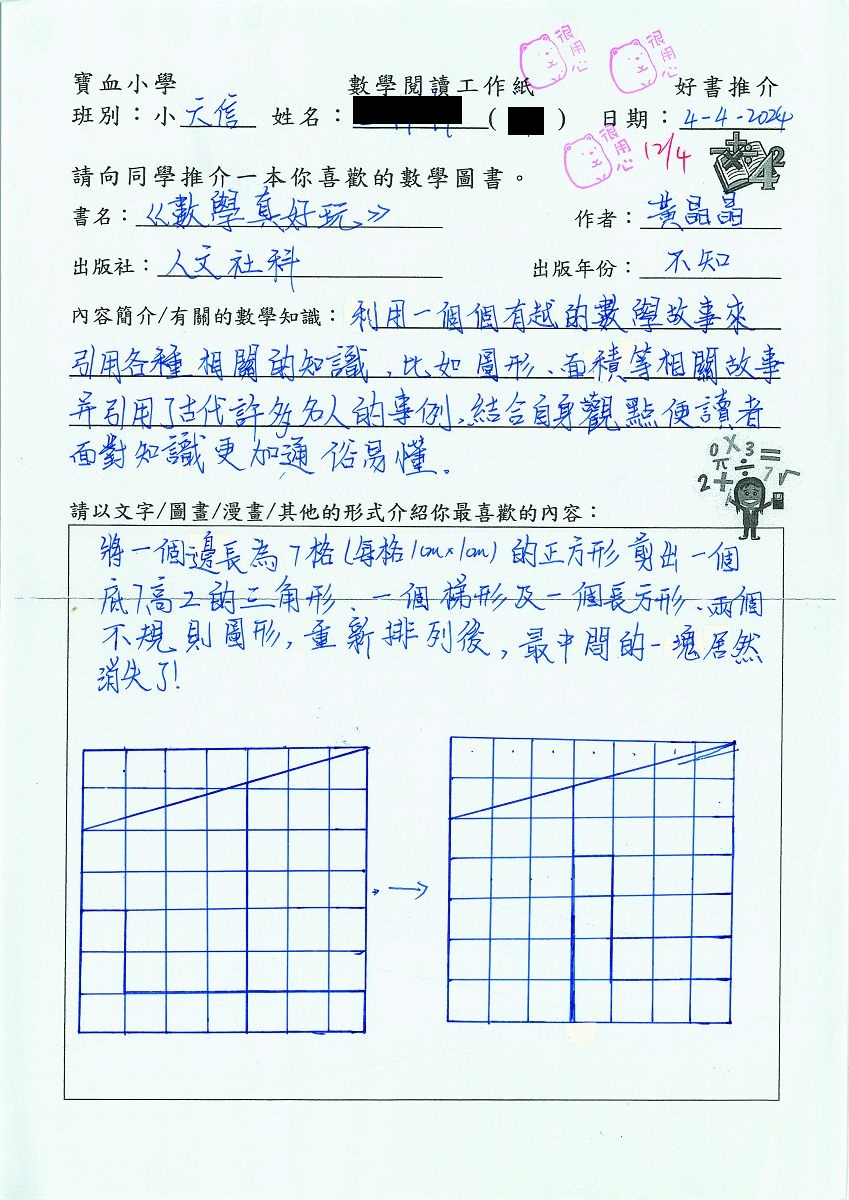 很用心 很用心
寶血小學 數學閱讀工作紙 好書推介
班別：小 天信 姓名： ( ) 日期： 4-4-2024
很用心 12/4
請向同學推介一本你喜歡的數學圖書。
書名： 《數學真好玩》 作者： 黃晶晶
出版社： 人文社科 出版年份： 不知
內容簡介/有關的數學知識： 利用一個個有越的數學故事來
引用各種相關的知識，比如圖形、面積等相關故事
并引用了古代許多名人的事例，結合自身觀點使讀者
面對知識更加通俗易懂。
請以文字/圖畫/漫畫/其他的形式介紹你最喜歡的內容：
將一個邊長為7格(每格1cm×1cm)的正方形剪出一個
底7高2的三角形、一個梯形及一個長方形、兩個
不規則圖形，重新排列後，最中間的一塊居然
消失了!